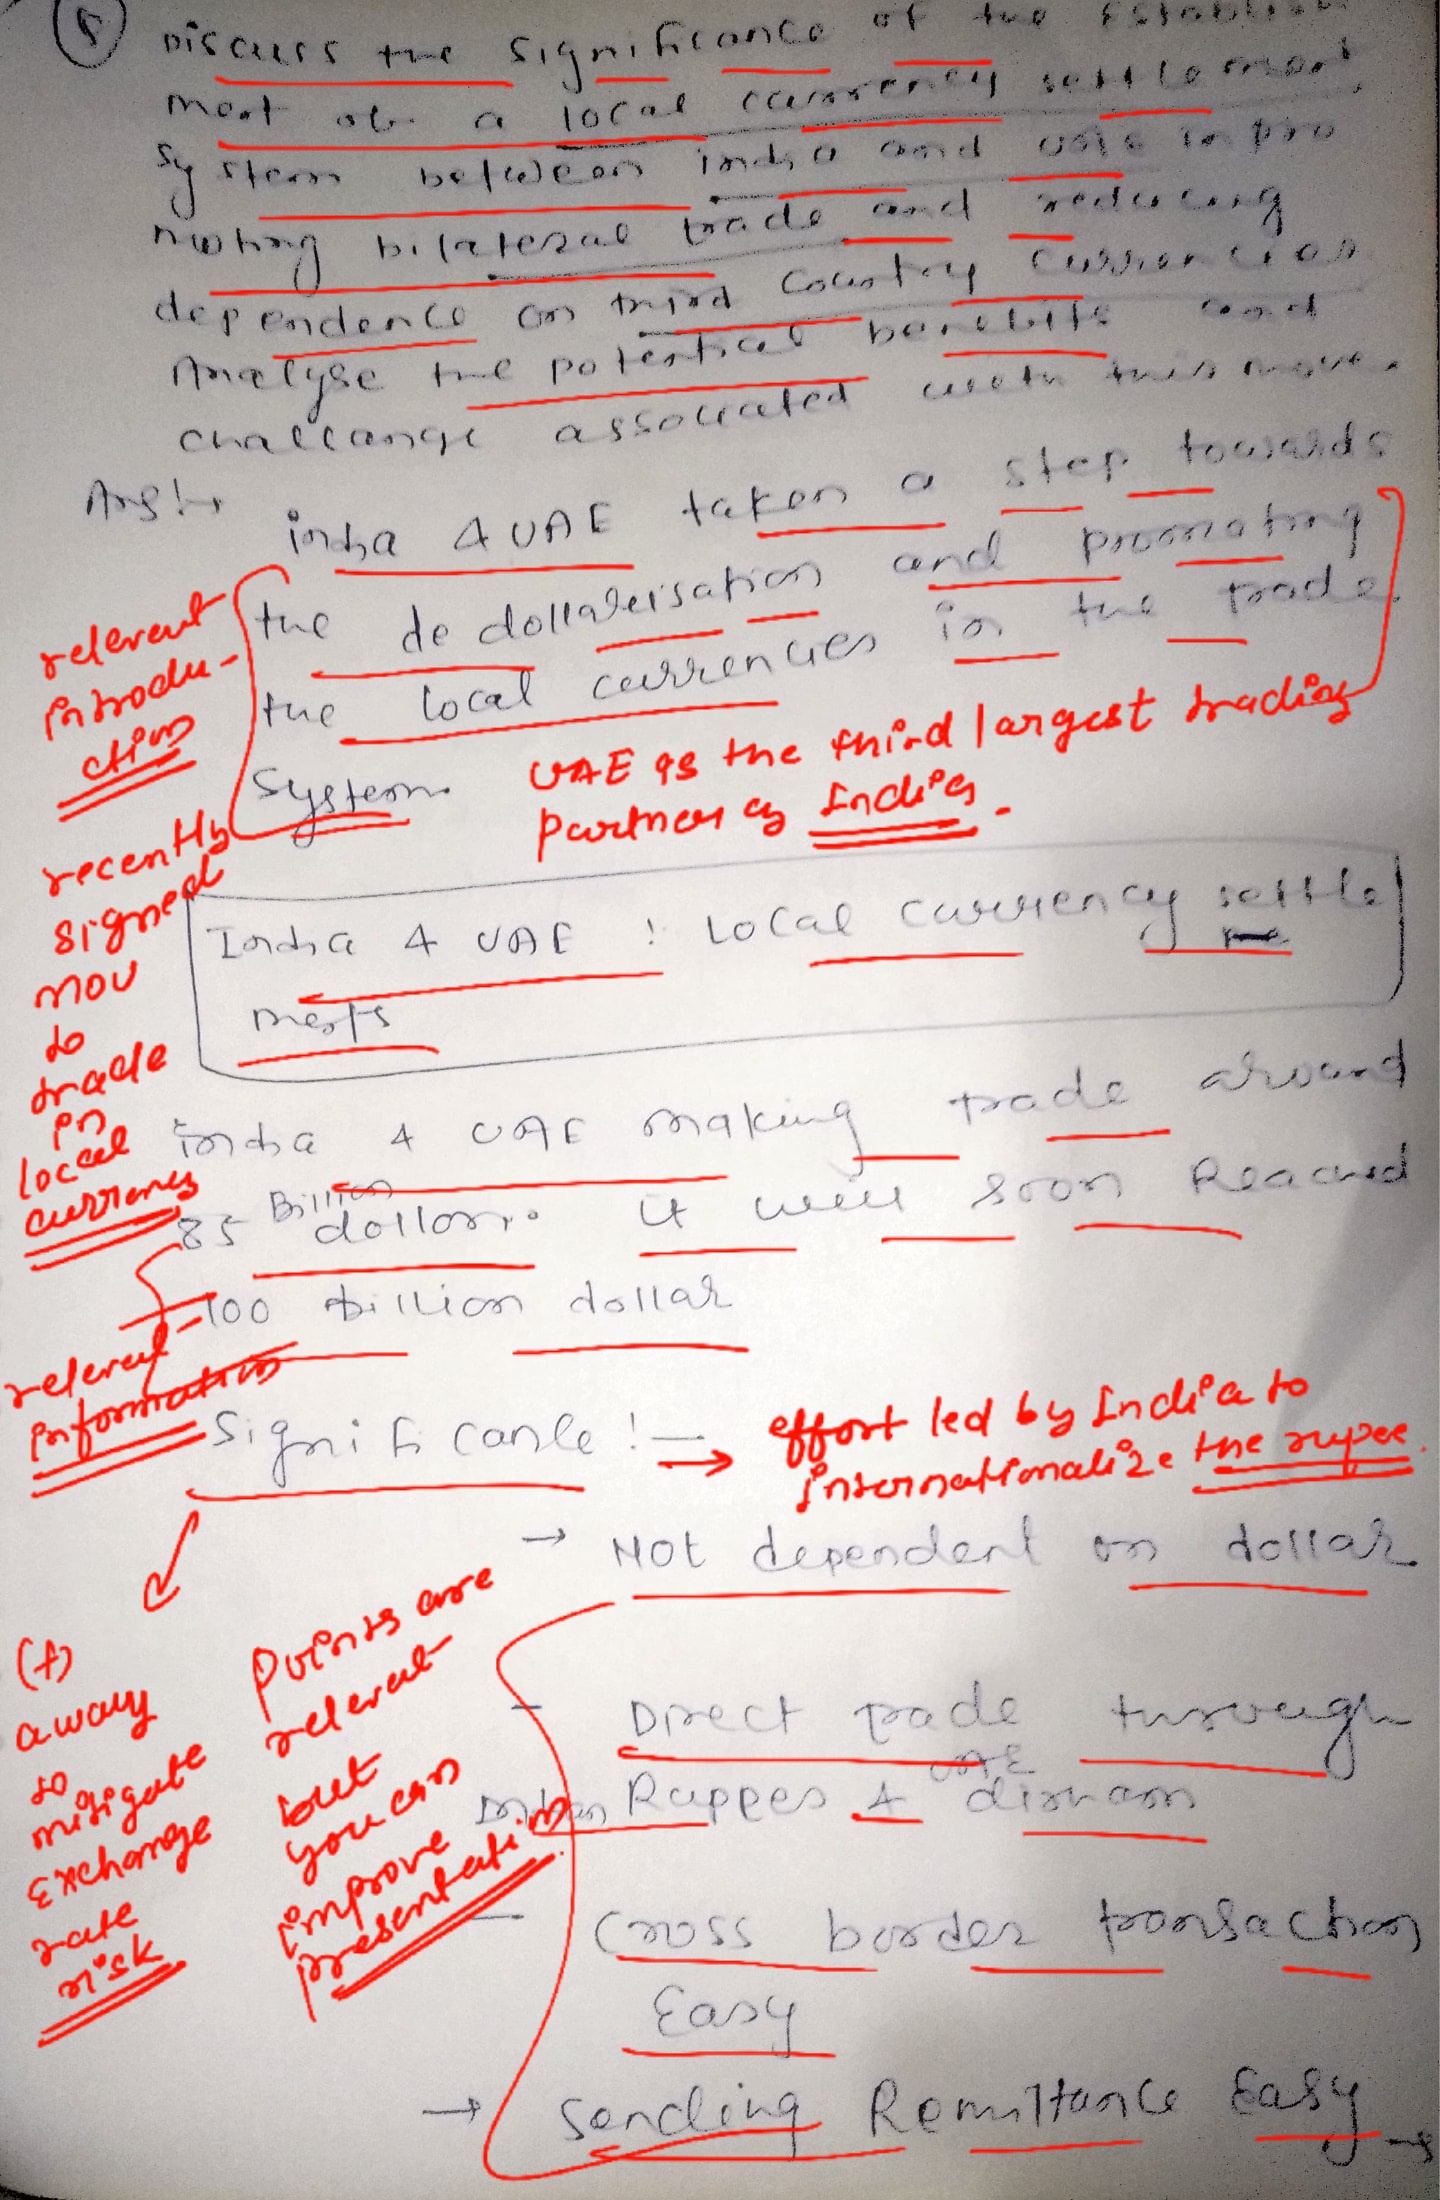 5 Discuss the significance of the Establish
ment of a local currency settlement
system between india and uae in pro
moting bilateral trade and reducing
dependence on third country currencies
Analyse the potential benefits and
challange associated with this move.
Ans:-
india & UAE taken a step towards
the de dollaleisation and promoting
the local currencies in the trade
system.
relevent
introdu-
ction
UAE is the third largest trading
partner of India.
recently
signed
MOU
to
trade
in
local
currency
India & UAE : Local currency settle
ments
india & UAE making trade around
85 Billion dollor. it will soon Reached
100 billion dollar
relevent
information
Significanle :-
→ effort led by India to
internationalize the rupee.
→ Not dependent on dollar
(+)
away
to
mitigate
exchange
rate
risk
Points are
relevat
but
you can
improve
presentation
- Direct trade through
Indian Ruppes & UAE dirham
- Cross border transaction
Easy
→ Sending Remittance Easy